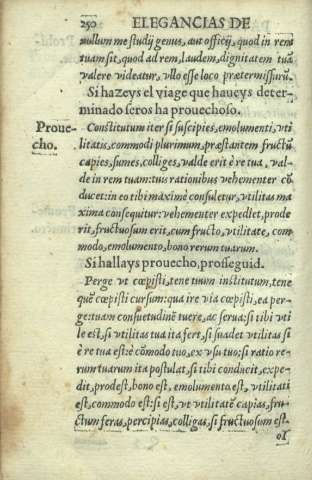 250 ELEGANCIAS DE
nullum me studij genus, aut officij, quod in rem
tuam sit, quod ad rem, laudem, dignitatem tuā
valere videatur, vllo esse loco prætermissurū.
Si hazeys el viage que haueys deter-
minado seros ha prouechoso.
Proue-
cho.
Constitutum iter si suscipies, emolumenti, vti
litatis, commodi plurimum, præstantem fructū
capies, sumes, colliges, valde erit è re tua, val-
de in rem tuam: tuis rationibus vehementer cō
ducet: in eo tibi maximè consuletur, vtilitas ma
xima consequitur: vehementer expediet, prode
rit, fructuosum erit, cum fructu, vtilitate, com
modo, emolumento, bono rerum tuarum.
Si hallays prouecho, prosseguid.
Perge vt cœpisti, tene tuum institutum, tene
quē cœpisti cursum: qua ire via cœpisti, ea per-
ge: tuam consuetudinē tuere, ac serua: si tibi vti
le est, si vtilitas tua ita fert, si suadet vtilitas si
è re tua est: è cōmodo tuo, ex vsu tuo: si ratio re-
rum tuarum ita postulat, si tibi conducit, expe-
dit, prodest, bono est, emolumento est, vtilitati
est, commodo est: si est, vt vtilitatē capias, fru-
ctum feras, percipias, colligas, si fructuosum est-